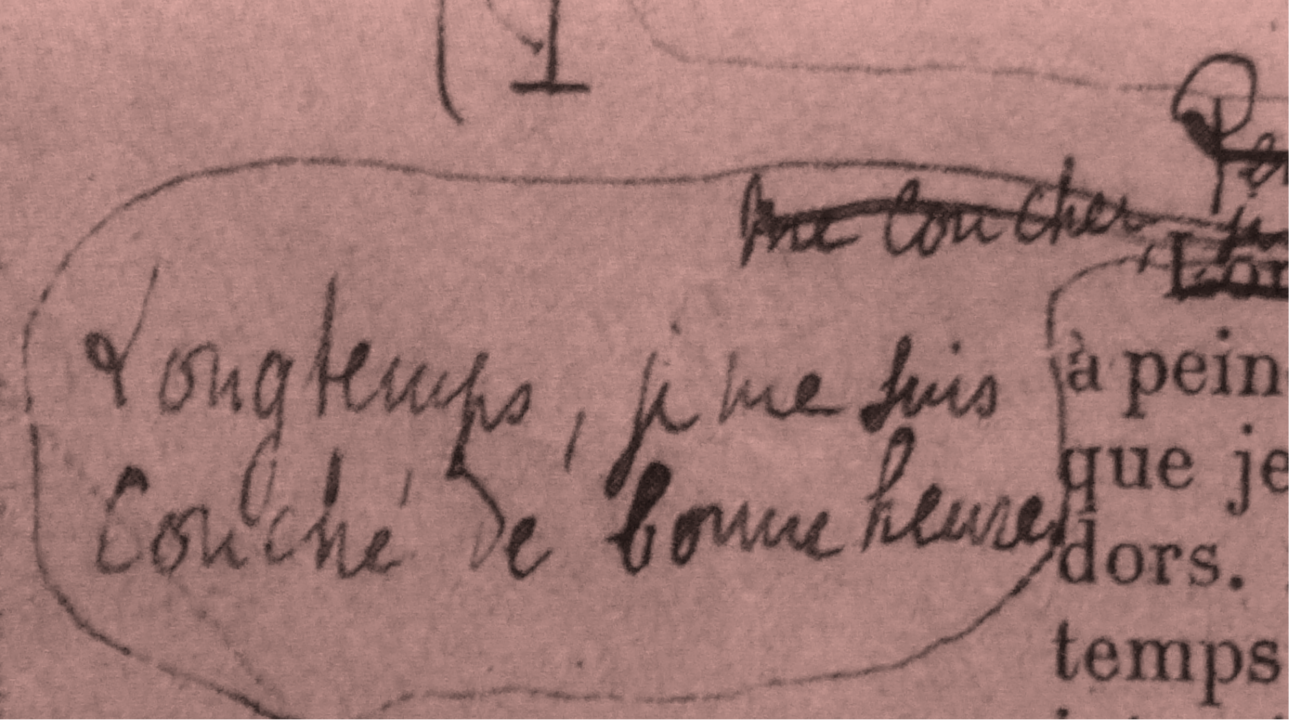 I
me coucher
Longtemps, je me suis
couché de bonne heure
à pein
que je
dors.
temps